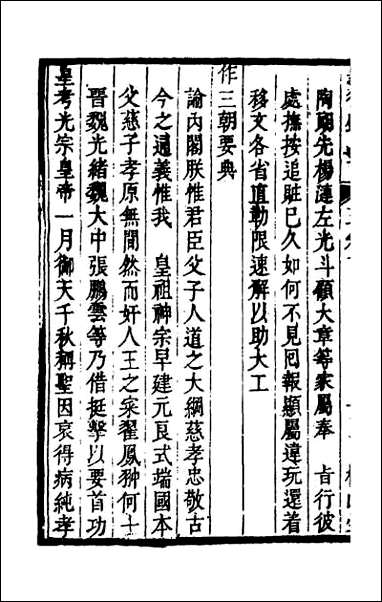 陶朗先楊漣左光斗顧大章等家屬奉　旨行彼
處撫按追賍已久如何不見囘報顯屬違玩還着
移文各省直勒限速解以助大工
作三朝要典
諭內閣朕惟君臣父子人道之大綱慈孝忠敬古
今之通義惟我　皇祖神宗早建元良式端國本
父慈子孝原無間然而奸人王之寀翟鳳翀何士
晉魏光緒魏大中張鵬雲等乃借挺擊以要首功
皇考光宗皇帝一月御天千秋稱聖因哀得病純孝